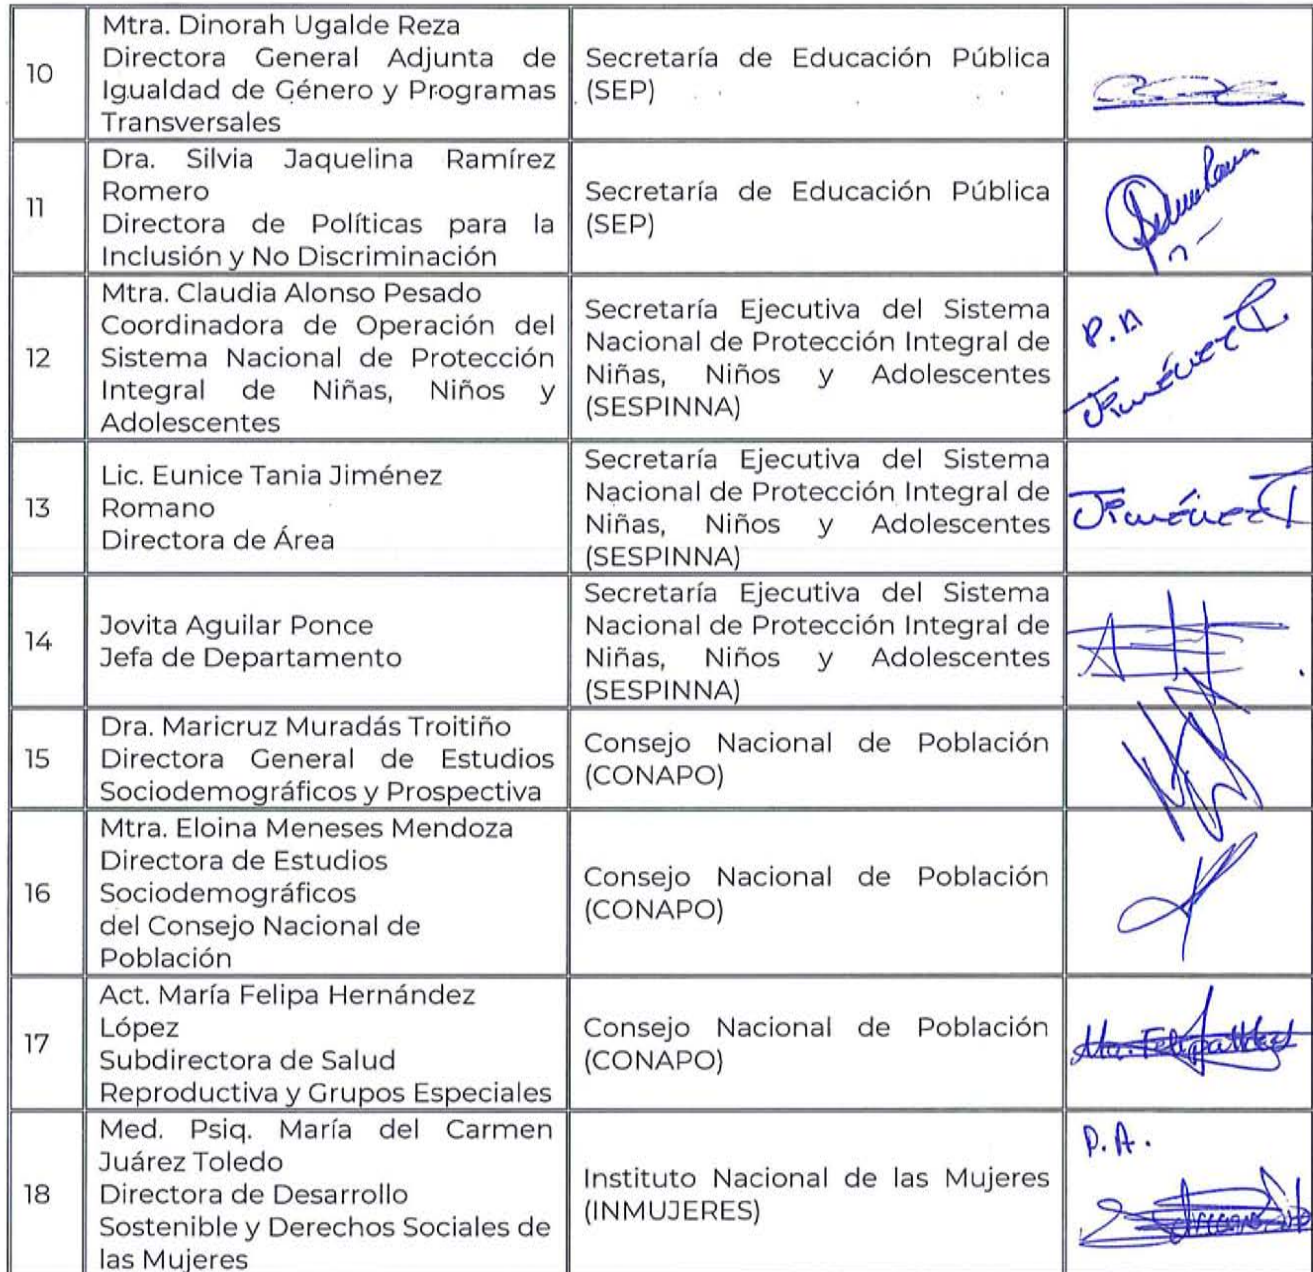 10
Mtra. Dinorah Ugalde Reza
Directora General Adjunta de
Igualdad de Género y Programas
Transversales
Secretaría de Educación Pública
(SEP)
11
Dra. Silvia Jaquelina Ramírez
Romero
Directora de Políticas para la
Inclusión y No Discriminación
Secretaría de Educación Pública
(SEP)
12
Mtra. Claudia Alonso Pesado
Coordinadora de Operación del
Sistema Nacional de Protección
Integral de Niñas, Niños y
Adolescentes
Secretaría Ejecutiva del Sistema
Nacional de Protección Integral de
Niñas, Niños y Adolescentes
(SESPINNA)
P.A
Jiménez
13
Lic. Eunice Tania Jiménez
Romano
Directora de Área
Secretaría Ejecutiva del Sistema
Nacional de Protección Integral de
Niñas, Niños y Adolescentes
(SESPINNA)
Jiménez
14
Jovita Aguilar Ponce
Jefa de Departamento
Secretaría Ejecutiva del Sistema
Nacional de Protección Integral de
Niñas, Niños y Adolescentes
(SESPINNA)
15
Dra. Maricruz Muradás Troitiño
Directora General de Estudios
Sociodemográficos y Prospectiva
Consejo Nacional de Población
(CONAPO)
16
Mtra. Eloina Meneses Mendoza
Directora de Estudios
Sociodemográficos
del Consejo Nacional de
Población
Consejo Nacional de Población
(CONAPO)
17
Act. María Felipa Hernández
López
Subdirectora de Salud
Reproductiva y Grupos Especiales
Consejo Nacional de Población
(CONAPO)
Ma. Felipa Hdez
18
Med. Psiq. María del Carmen
Juárez Toledo
Directora de Desarrollo
Sostenible y Derechos Sociales de
las Mujeres
Instituto Nacional de las Mujeres
(INMUJERES)
P.A.